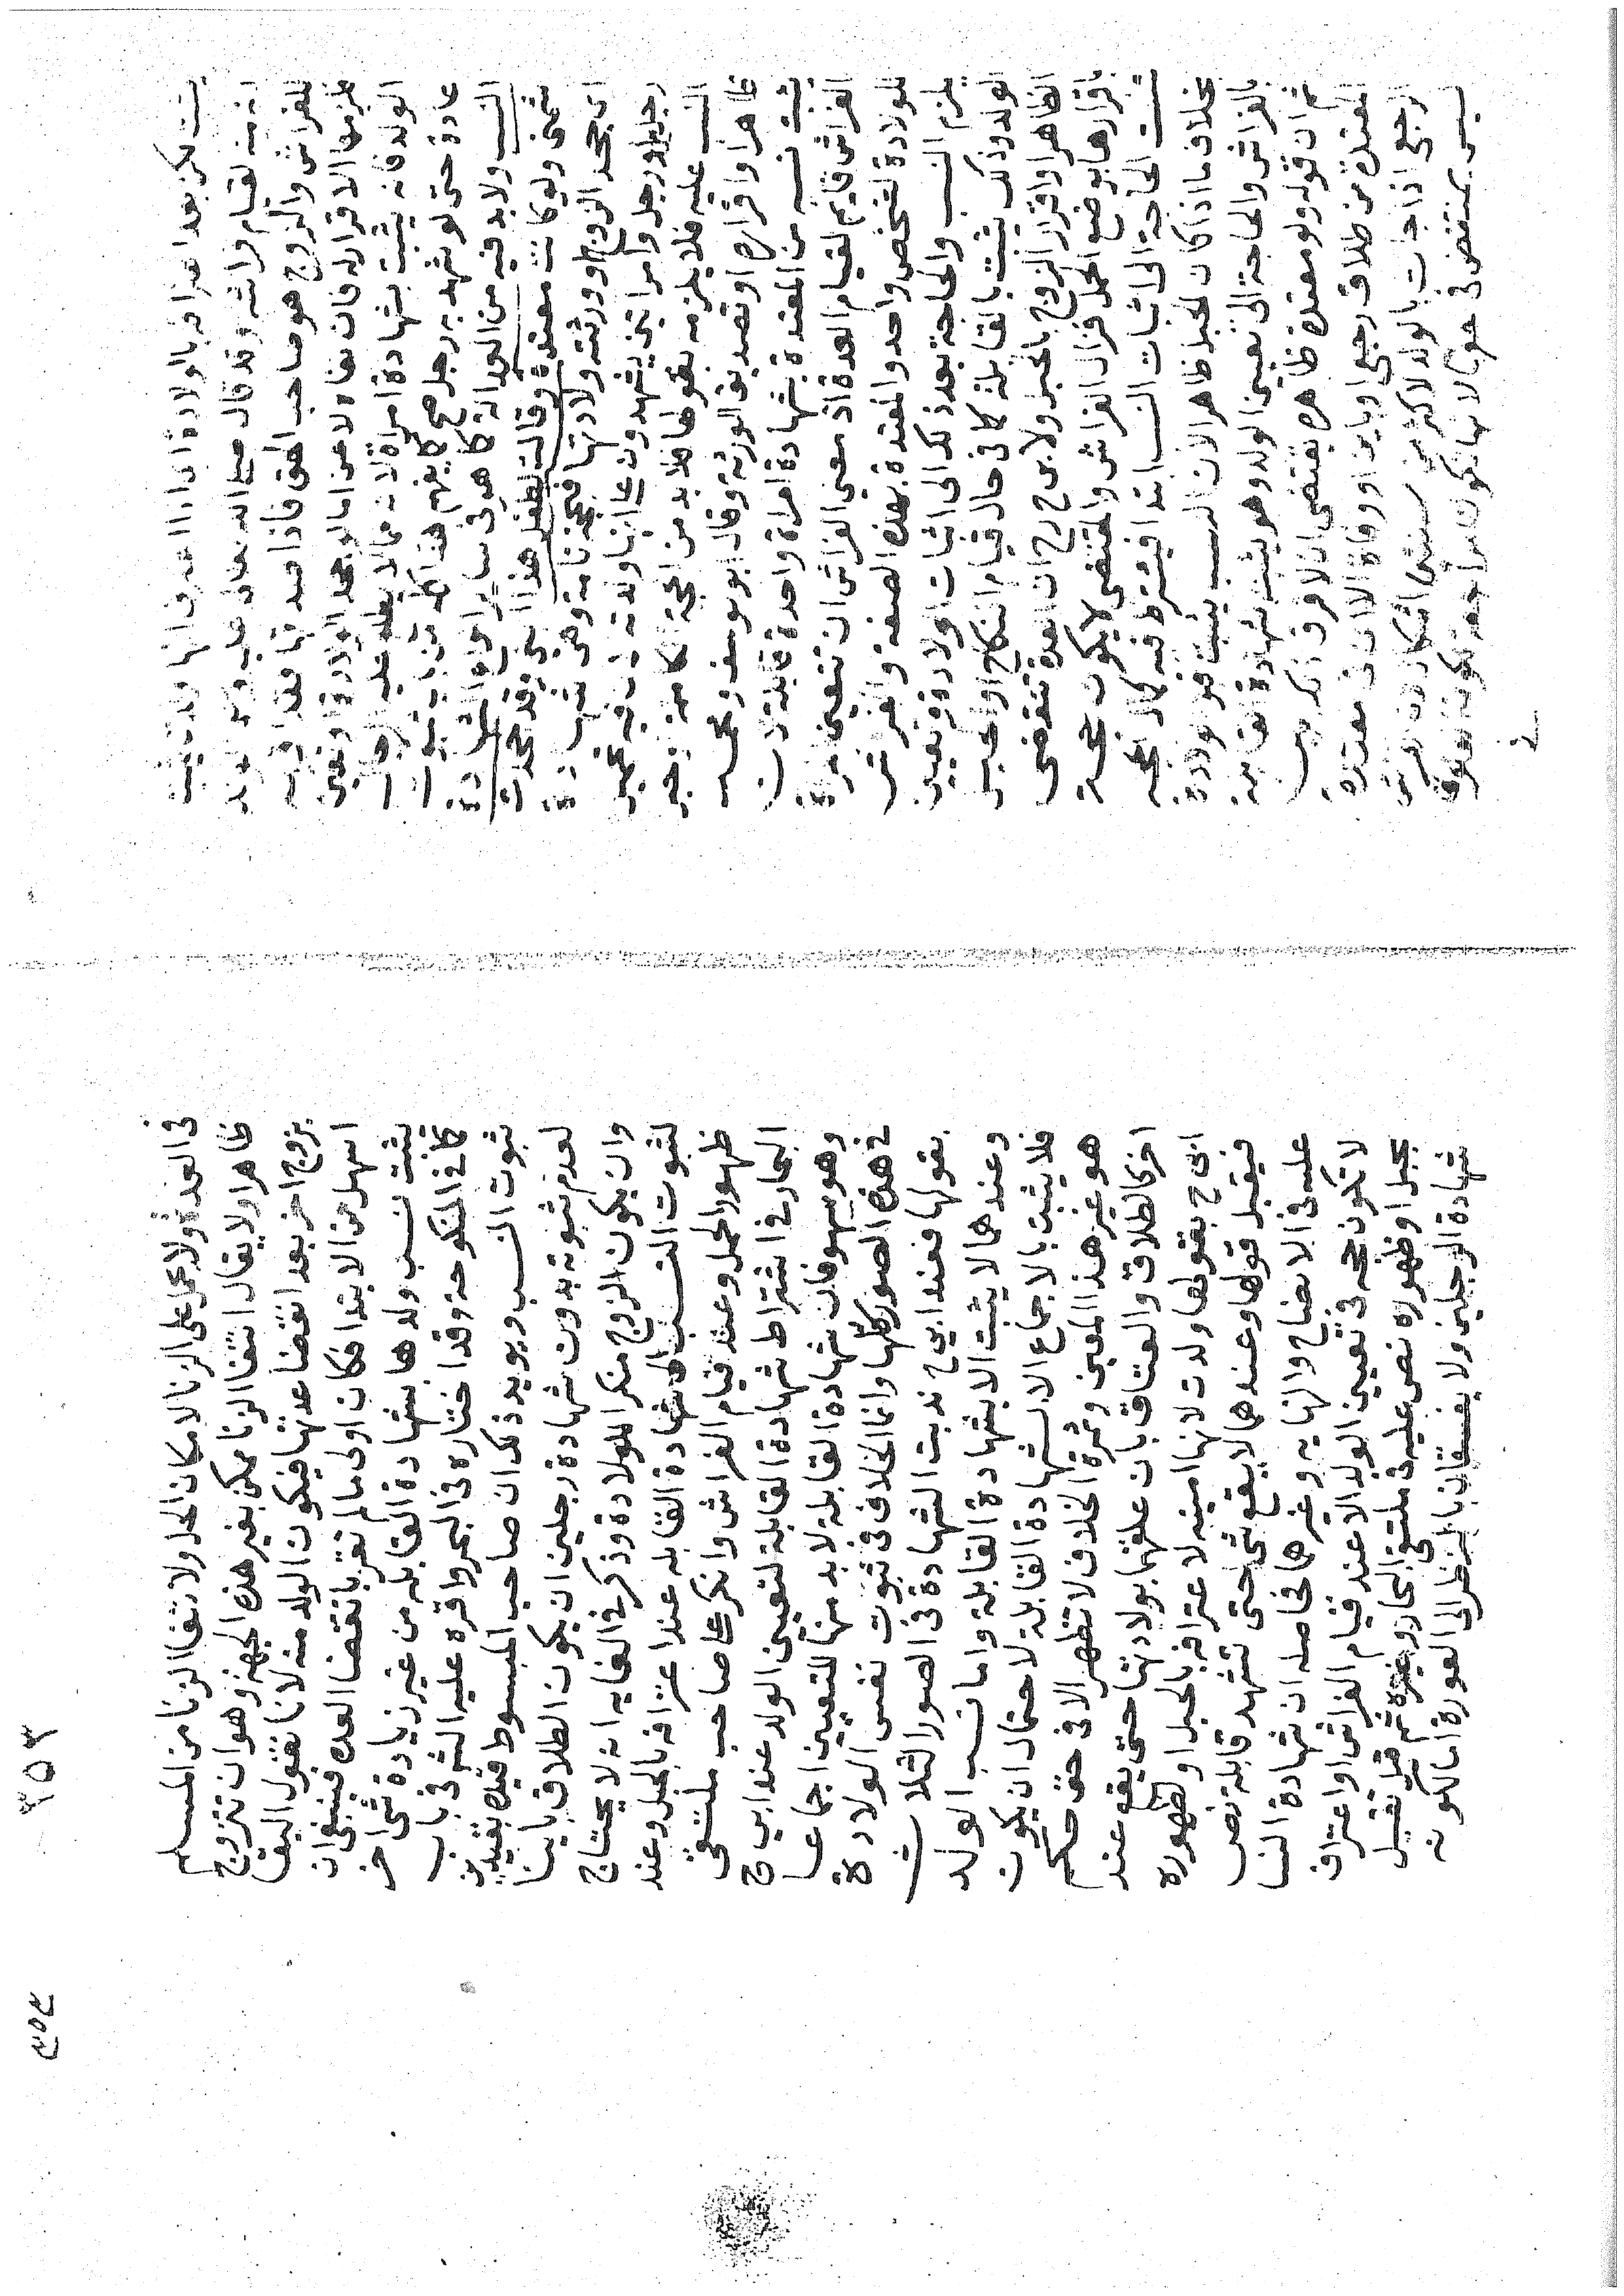 لكن بعد اعترافه بالولادة اذا انها ولدته يثبت
انه منه لقيام فراشه وقد قال صلى الله عليه وسلم الولد
للفراش والزوج هو صاحب الحق فاذا صدقها فقد اقر به
فلزمها الاقرار له فان نفاه لاعن اما لو جحد الولادة او تعيين
الولد فانه يثبت بشهادة امراة لانه مما لا يطلع عليه الرجال
عادة حتى لو شهد به رجل صح كما يفهم هنا
النسب ولا بد فيه من العدالة كما هو في ساير انواع الشهادة
شمنى ولو كانت معتدة وقالت لطفل هذا ابني وقد جحدت
اي جحد الزوج او ورثته ولادتها فبحجة تامة وهي شهادة
رجلين او رجل وامراتين يشهدون على انها ولدته لان فيه تحميل
النسب عليه فلا يلزمه بقولها فلا بد من الحجة الكاملة او حبل
ظاهر او اقراره او تصديق الورثة وقال ابو يوسف ومحمد
يثبت نسبه من المعتدة بشهادة امراة واحدة قابلة لان
الفراش قايم لقيام العدة اذ معنى الفراش ان تتعين المراة
للولادة لشخص واحد والمعتدة بهذه الصفة والفراش
يلزم النسب والحاجة بعد ذلك الى اثبات الولادة وتعيين
الولد وذلك يثبت بالقابلة كما في حال قيام النكاح او الحبل
الظاهر او اقرار الزوج بالحبل ولابي ح رح ان العدة تنقضي
باقرارها بوضع الحمل فزال الفراش والمنقضي لا يكون حجة
فمست الحاجة الى اثبات النسب ابتدا فيشترط فيه كمال الحجة
بخلاف ما اذا كان الحبل ظاهرا لان النسب يثبت قبل الولادة
بالفراش والحاجة الى تعيين الولد وهو يثبت بشهادة القابلة
ثم ان قوله ولو معتدة ظاهره يقتضي ان لا فرق
المعتدة من طلاق رجعي او باين او وفاة الا ان في معتدة
الرجعي اذا جات بالولد لاكثر من سنتين اشكال لان الفراش
ليس بمنقض في حقها لانها تكون مراجعة لكون العلوق
في العدة ولا يحمل على الزنا لامكان الحل ولانتفا الزنا من المسلم
ظاهرا ولا يقال انتفا الزنا ممكن بغير هذه الجهة وهو ان تتزوج
بزوج اخر بعد انقضا عدتها فيكون الولد منه لانا نقول البقا
اسهل من الابتدا فكان اولى ما لم تقر بانقضا العدة فينبغي ان
يثبت نسب ولدها بشهادة القابلة من غير زيادة شي اخر
كما في المنكوحة وقد اختاره في البحر واقره عليه الشرفي باب
ثبوت النسب ويؤيد ذلك ان صاحب المبسوط قيده بقيدين
لعدم ثبوته بدون شهادة رجلين ان يكون الطلاق باينا
وان يكون الزوج منكرا للولادة وذكر في الغاية انه لا يحتاج
لثبوت النسب الى شهادة القابلة عند اعترافه بالحبل وعند
ظهور الحمل وعند قيام الفراش وانكر على صاحب ملتقى
البحار في اشتراط شهادة القابلة لتعيين الولد عند ابي ح
وهو سهو فان شهادة القابلة لا بد منها للتعيين اجماعا
في هذه الصور كلها وانما الخلاف في ثبوت نفس الولادة
بقولها فعند ابي ح ثبت الشهادة في الصور الثلاث
وعندهما لا يثبت الا بشهادة القابلة واما نسب الولد
فلا يثبت بالاجماع الا بشهادة القابلة لاحتمال ان يكون
هو غير هذا المعين وثمرة الخلاف لا تظهر الا في حق حكم
اخر كالطلاق والعتاق بان علقهما بولادتها حتى يقع عند
ابي ح بقولها ولدت لانها امينة لاعترافه بالحبل او لظهوره
فيقبل قولها وعندهما لا يقع شي حتى تشهد قابلة نص
عليه في الايضاح والنهاية وغيرها فحاصله ان شهادة النسا
لا تكون حجة في تعيين الولد الا عند قيام الفراش او اعتراف
بحبل او ظهوره نص عليه في ملتقى البحار وغيره ثم قيل تقبل
شهادة الرجلين ولا يفسقان بالنظر الى العورة اما لكونه
٣٥٣
٣٥٣